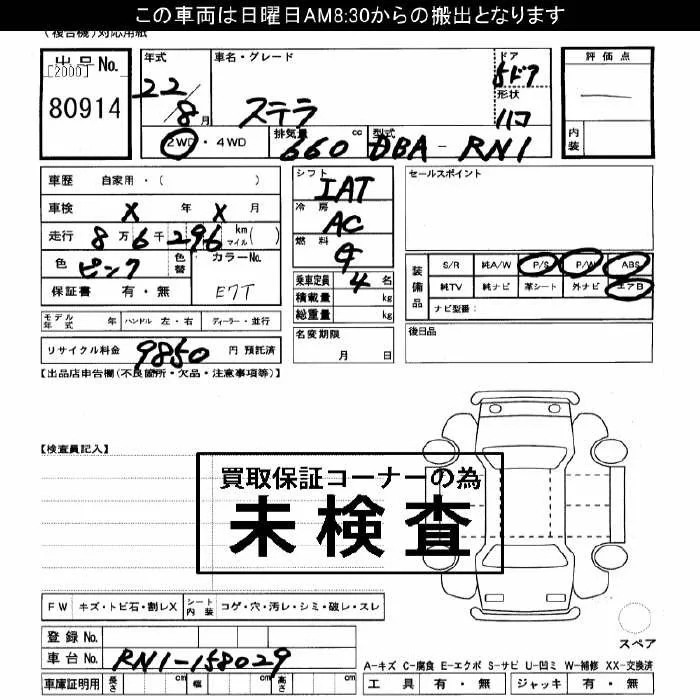 この車両は日曜日AM8:30からの搬出となります
(複合機)対応用紙
出品No.
[2000]
80914
年式 22/8月
車名・グレード ステラ
ドア 5ドア
形状 ハコ
評価点
内装
2WD・4WD
排気量 660 cc
型式 DBA-RN1
車歴 自家用・( )
車検 X 年 X 月
走行 8万6千296 km マイル( )
色 ピンク 色替 カラーNo. E7T
保証書 有・無
シフト IAT
冷房 AC
燃料 G
乗車定員 4 名
積載量 kg
総重量 kg
セールスポイント
装備品
S/R 純A/W P/S P/W ABS
純TV 純ナビ 革シート 外ナビ エアB
ナビ型番:
モデル年式 年 ハンドル 左・右 ディーラー・並行
名変期限 月 日
後日品
リサイクル料金 9850 円 預託済
【出品店申告欄(不良箇所・欠品・注意事項等)】
【検査員記入】
買取保証コーナーの為
未検査
FW キズ・トビ石・割レX シート内装 コゲ・穴・汚レ・シミ・破レ・スレ
スペア
登録No.
車台No. RN1-158029
A-キズ C-腐食 E-エクボ S-サビ U-凹ミ W-補修 XX-交換済
車庫証明用 長さ cm 幅 cm 高さ cm
工具 有・無 ジャッキ 有・無